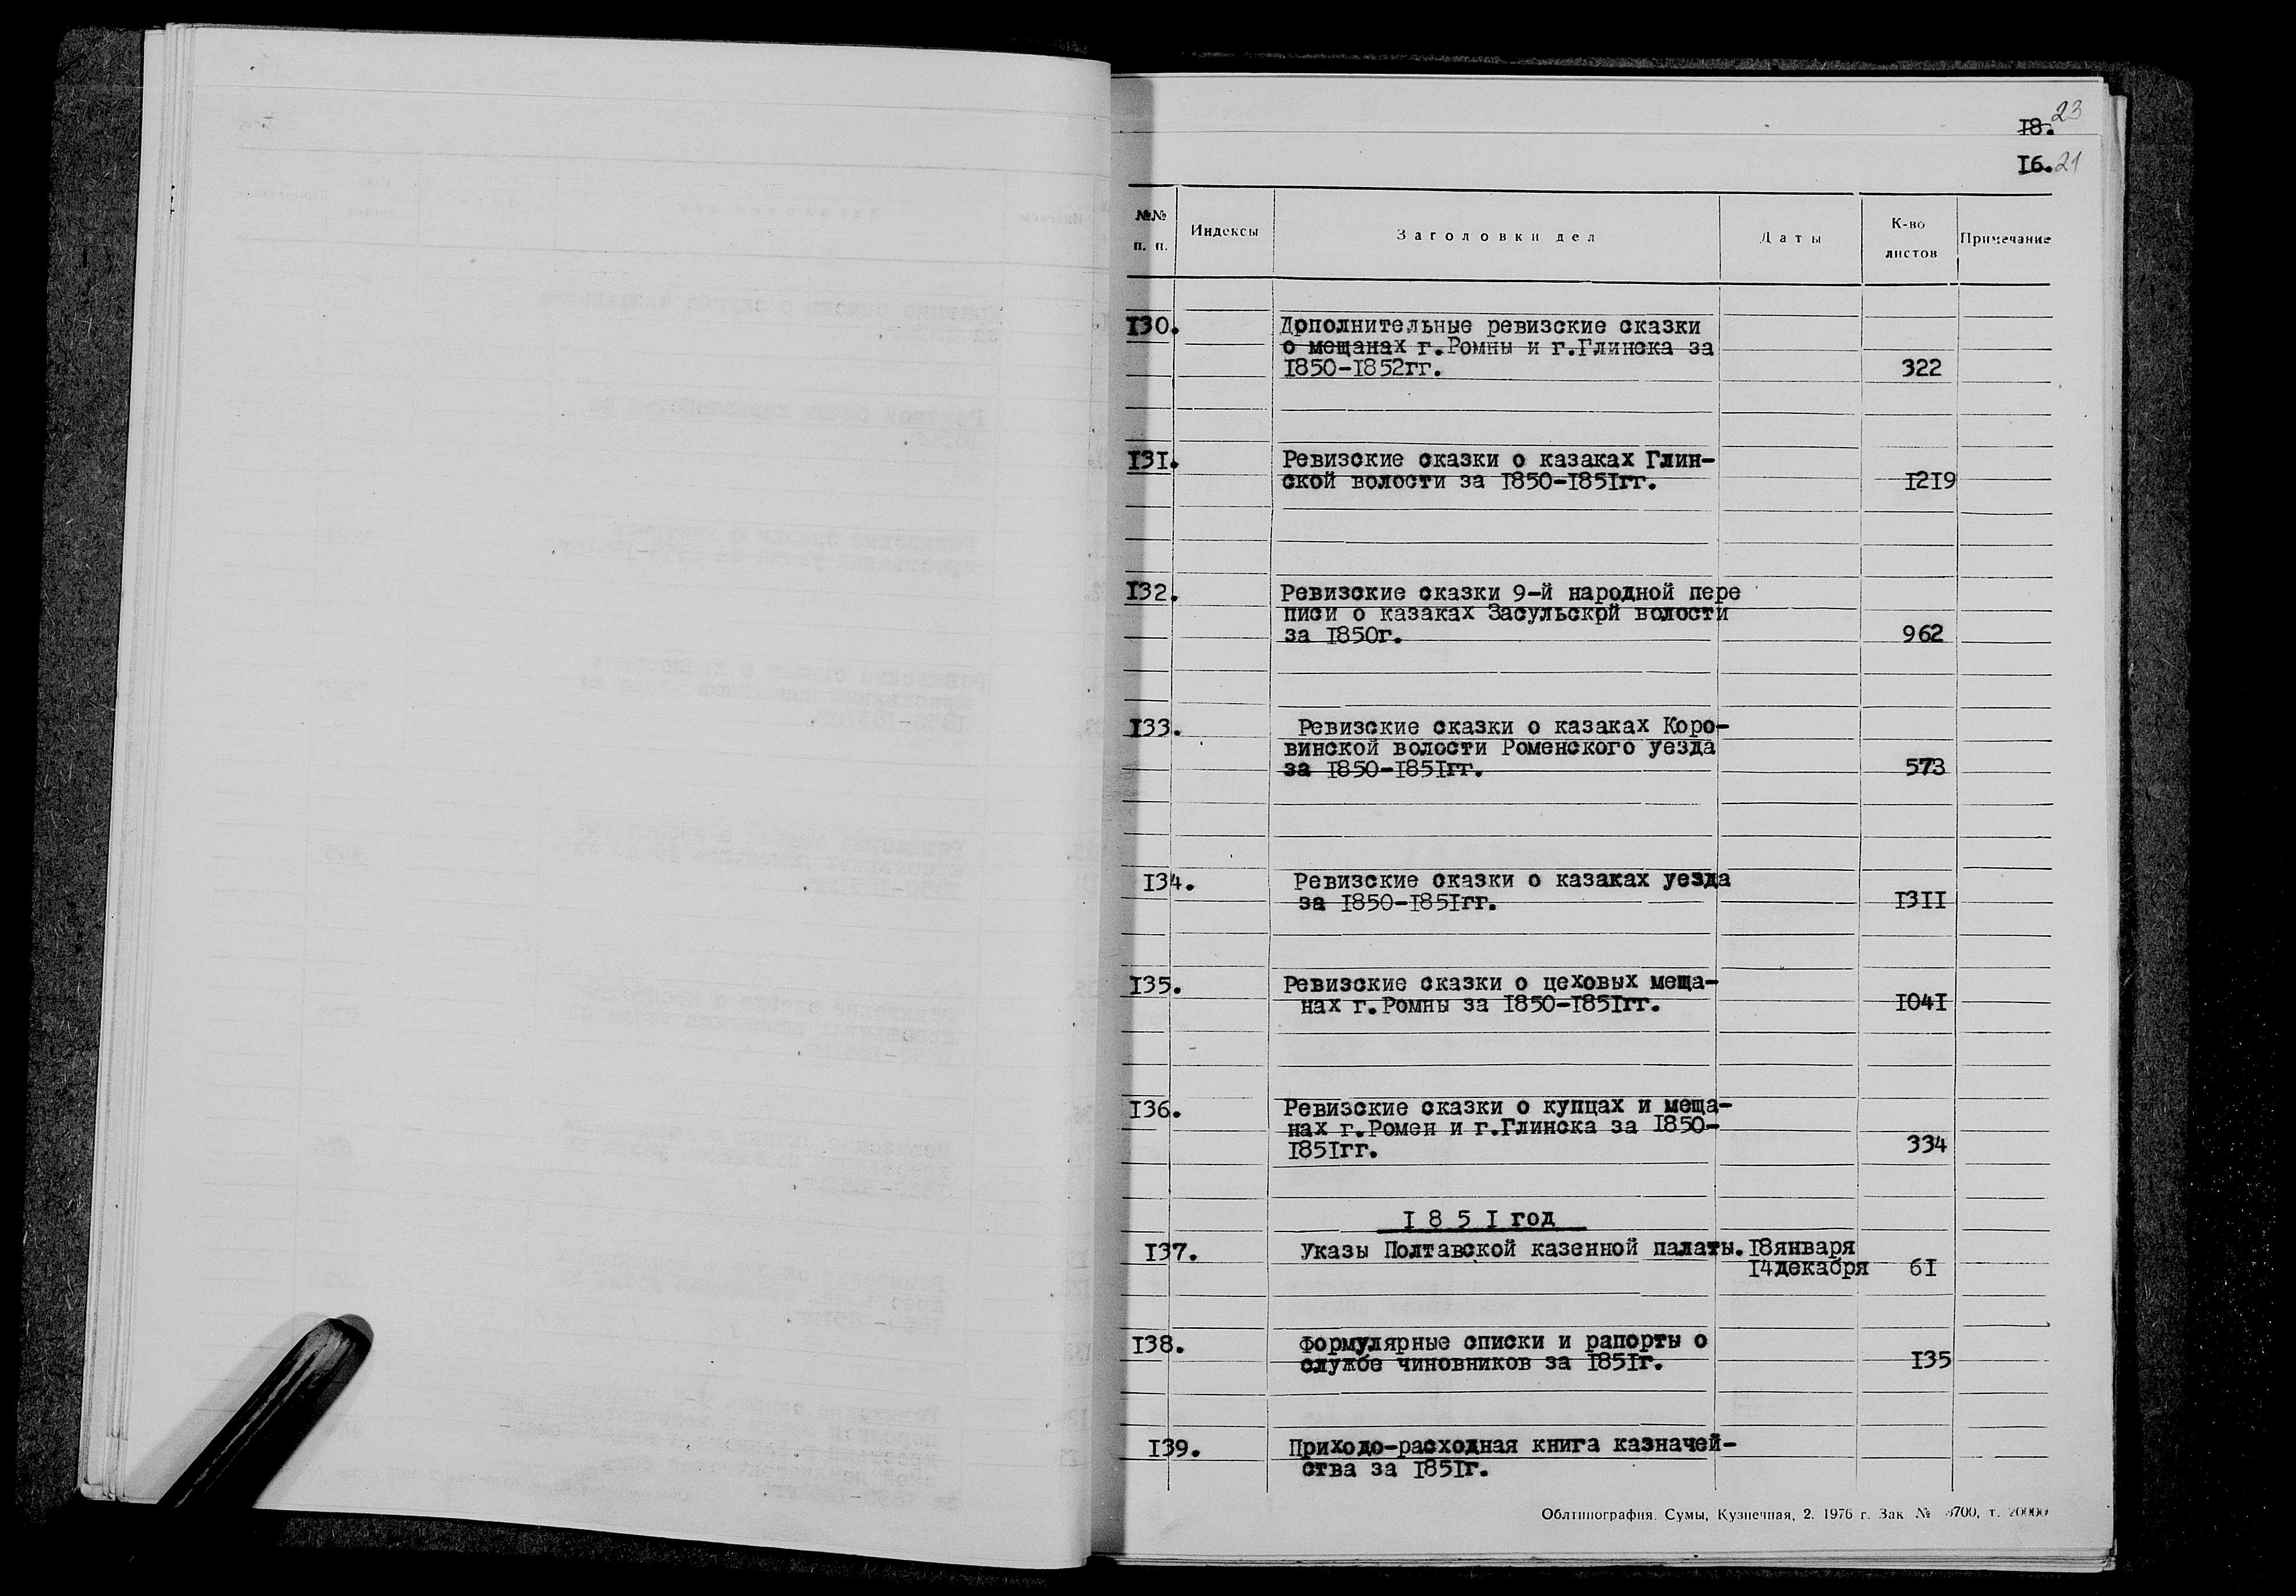 18. 23
16. 21
№№ п. п. Индексы Заголовки дел Даты К-во листов Примечание
130. Дополнительные ревизские сказки
о мещанах г.Ромны и г.Глинска за
1850-1852гг. 322
131. Ревизские сказки о казаках Глин-
ской волости за 1850-1851гг. 1219
132. Ревизские сказки 9-й народной пере
писи о казаках Засульской волости
за 1850г. 962
133. Ревизские сказки о казаках Коро-
винской волости Роменского уезда
за 1850-1851гг. 573
134. Ревизские сказки о казаках уезда
за 1850-1851гг. 1311
135. Ревизские сказки о цеховых меща-
нах г.Ромны за 1850-1851гг. 1041
136. Ревизские сказки о купцах и меща-
нах г.Ромен и г.Глинска за 1850-
1851гг. 334
1851 год
137. Указы Полтавской казенной палаты. 18января
14декабря 61
138. Формулярные списки и рапорты о
службе чиновников за 1851г. 135
139. Приходо-расходная книга казначей-
ства за 1851г.
Облтипография. Сумы, Кузнечная, 2. 1976 г. Зак № 700, т. 20000